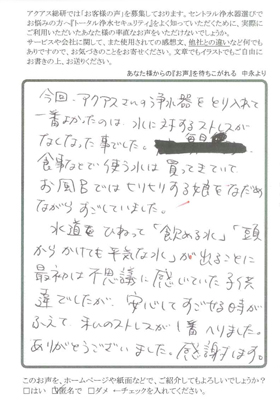 アクアス総研では「お客様の声」を募集しております。セントラル浄水器選びで
お悩みの方へ『トータル浄水セキュリティ』をよく知っていただくために、実際に
ご利用いただいたあなた様の率直なお声をいただけないでしょうか。
サービスや会社に関して、また使用されての感想文、他社との違いなど何でも
ありですので、お気づきのことをお寄せください。文章でもイラストでもご自由に
お書きの上、お送りください。
あなた様からの『お声』を待ちこがれる 中永より
今回、アクアスという浄水器をとり入れて
一番よかったのは、水に対するストレスが
なくなった事でした。毎日
食事などで使う水は買ってきていて
お風呂ではヒリヒリする娘をなだめ
ながらすごしていました。
水道をひねって「飲める水」「頭
からかけても平気な水」が出ることに
最初は不思議に感じていた子供
達でしたが、安心してすごせる時が
ふえて、私のストレスが1番へりました。
ありがとうございました。感謝します。
このお声を、ホームページや紙面などで、ご紹介してもよろしいでしょうか？
□はい ☑匿名で □ダメ ←チェックを入れてください。